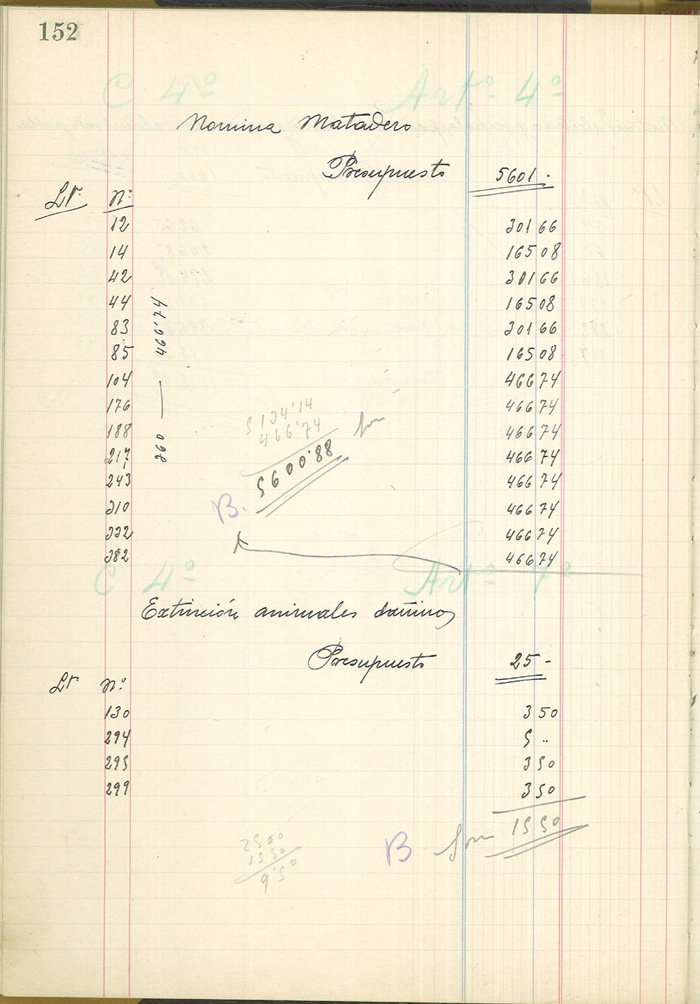 152
C 4º Artº 4º
Nomina Matadero
Presupuesto 5601 -
Lº. Nº:
12 301 66
14 165 08
42 301 66
44 165 08
83 301 66
85 165 08
104 466 74
176 466 74
188 466 74
217 466 74
243 466 74
310 466 74
332 466 74
382 466 74
260 — 466,74
5134'14
466'74
5600'88
B.
C 4º Artº 7º
Extinción animales dañinos
Presupuesto 25 -
Lº Nº:
130 3 50
294 5 ..
295 3 50
299 3 50
B Son 15 50
25 00
15 50
9'50